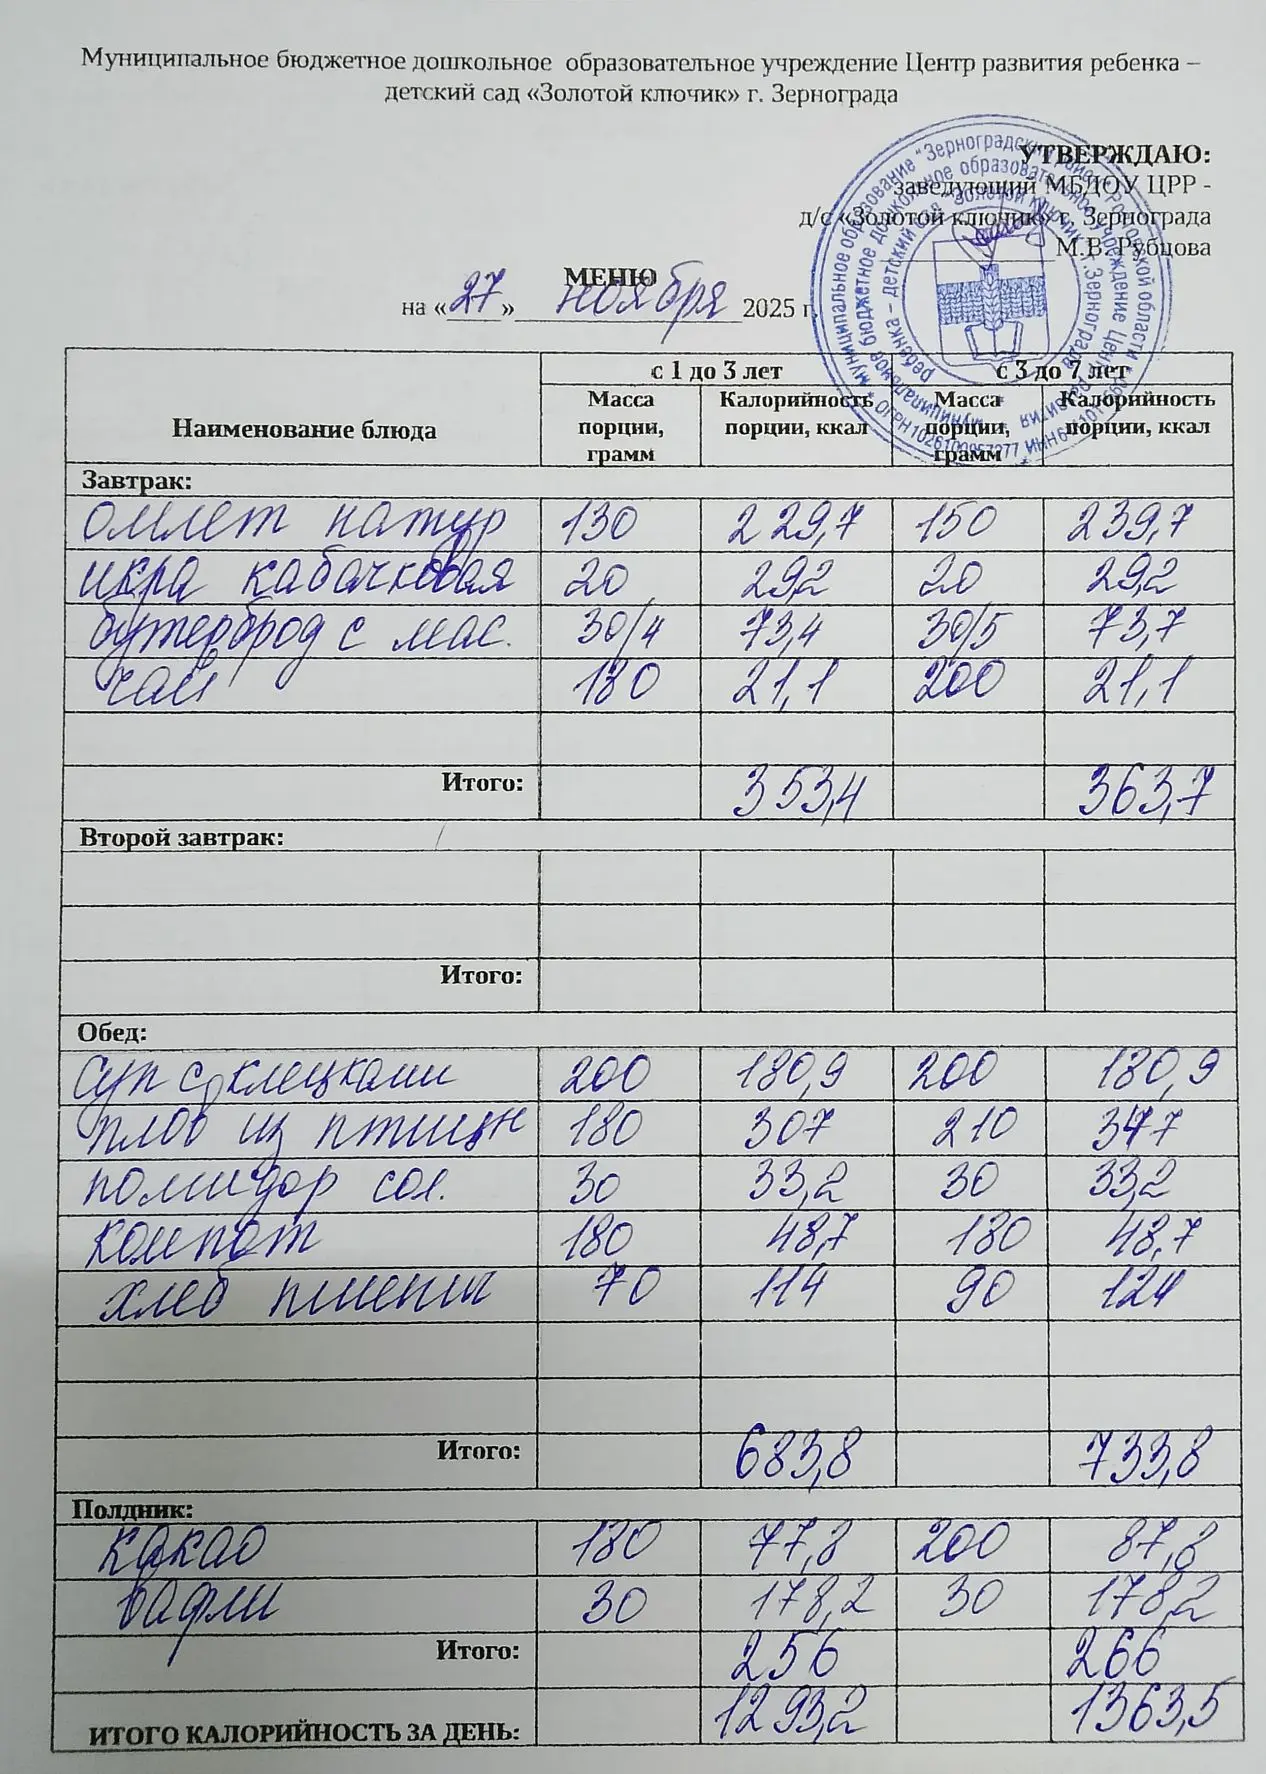 Муниципальное бюджетное дошкольное образовательное учреждение Центр развития ребенка –
детский сад «Золотой ключик» г. Зернограда
УТВЕРЖДАЮ:
заведующий МБДОУ ЦРР -
д/с «Золотой ключик» г. Зернограда
М.В. Рубцова
МЕНЮ
на «27» ноября 2025 г.
Наименование блюда с 1 до 3 лет с 3 до 7 лет
Масса порции, грамм Калорийность порции, ккал Масса порции, грамм Калорийность порции, ккал
Завтрак:
омлет натур 130 229,7 150 239,7
икра кабачковая 20 29,2 20 29,2
бутерброд с мас. 30/4 73,4 30/5 73,7
чай 180 21,1 200 21,1
Итого: 353,4 363,7
Второй завтрак:
Итого:
Обед:
Суп с клецками 200 180,9 200 180,9
плов из птицы 180 307 210 347
помидор сол. 30 33,2 30 33,2
компот 180 48,7 180 48,7
хлеб пшенич 70 114 90 124
Итого: 683,8 733,8
Полдник:
какао 180 77,8 200 87,8
вафли 30 178,2 30 178,2
Итого: 256 266
ИТОГО КАЛОРИЙНОСТЬ ЗА ДЕНЬ: 1293,2 1363,5